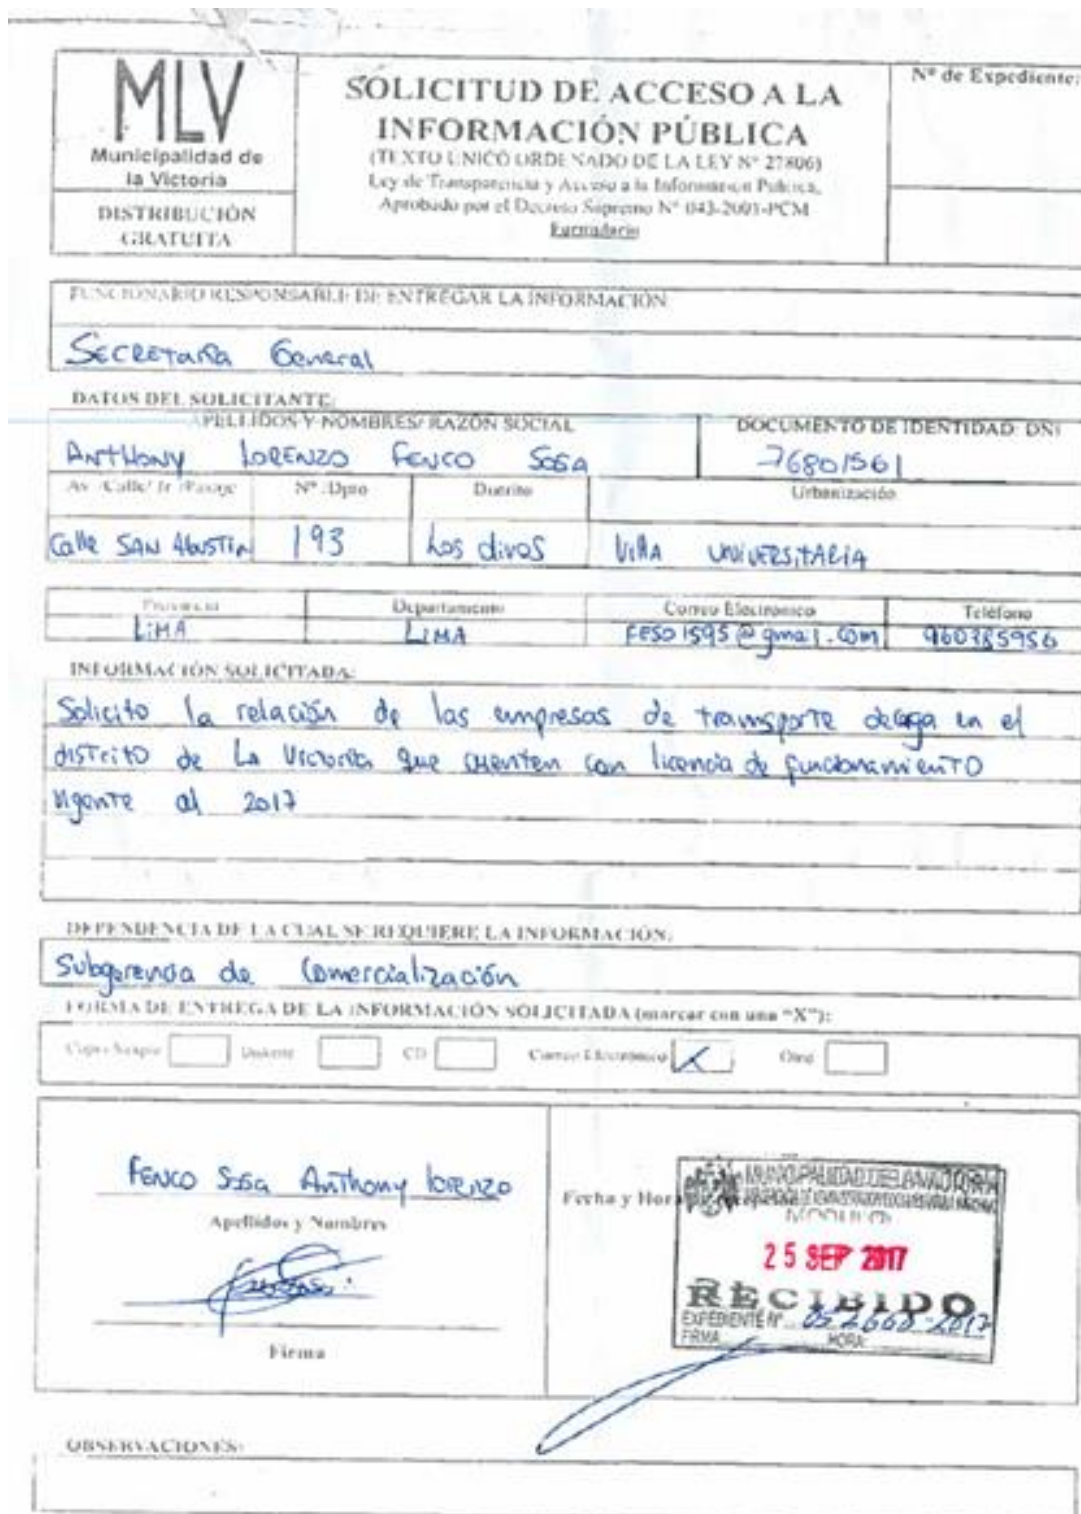 MLV
Municipalidad de
la Victoria
DISTRIBUCIÓN
GRATUITA
SOLICITUD DE ACCESO A LA
INFORMACIÓN PÚBLICA
(TEXTO UNICO ORDENADO DE LA LEY Nº 27806)
Ley de Transparencia y Acceso a la Información Pública,
Aprobado por el Decreto Supremo Nº 043-2003-PCM
Formulario
Nº de Expediente:
FUNCIONARIO RESPONSABLE DE ENTREGAR LA INFORMACIÓN
SECRETARÍA General
DATOS DEL SOLICITANTE:
APELLIDOS Y NOMBRES/ RAZÓN SOCIAL DOCUMENTO DE IDENTIDAD: DNI
ANTHONY LORENZO FENCO SOSA 76801561
Av /Calle/ Jr /Pasaje Nº /Dpto Distrito Urbanización
Calle SAN AGUSTIN 193 Los olivos VILLA UNIVERSITARIA
Provincia Departamento Correo Electrónico Teléfono
LIMA LIMA FESO1595@gmail.com 960385956
INFORMACIÓN SOLICITADA:
Solicito la relación de las empresas de transporte de carga en el
distrito de La Victoria que cuenten con licencia de funcionamiento
vigente al 2017
DEPENDENCIA DE LA CUAL SE REQUIERE LA INFORMACIÓN:
Subgerencia de Comercialización
FORMA DE ENTREGA DE LA INFORMACIÓN SOLICITADA (marcar con una "X"):
Copia Simple Diskette CD Correo Electrónico X Otro
FENCO Sosa Anthony lorenzo
Apellidos y Nombres
Firma
Fecha y Hora de recepción
MUNICIPALIDAD DE LA VICTORIA
25 SEP 2017
RECIBIDO
EXPEDIENTE Nº 052668-2017
FIRMA HORA:
OBSERVACIONES: